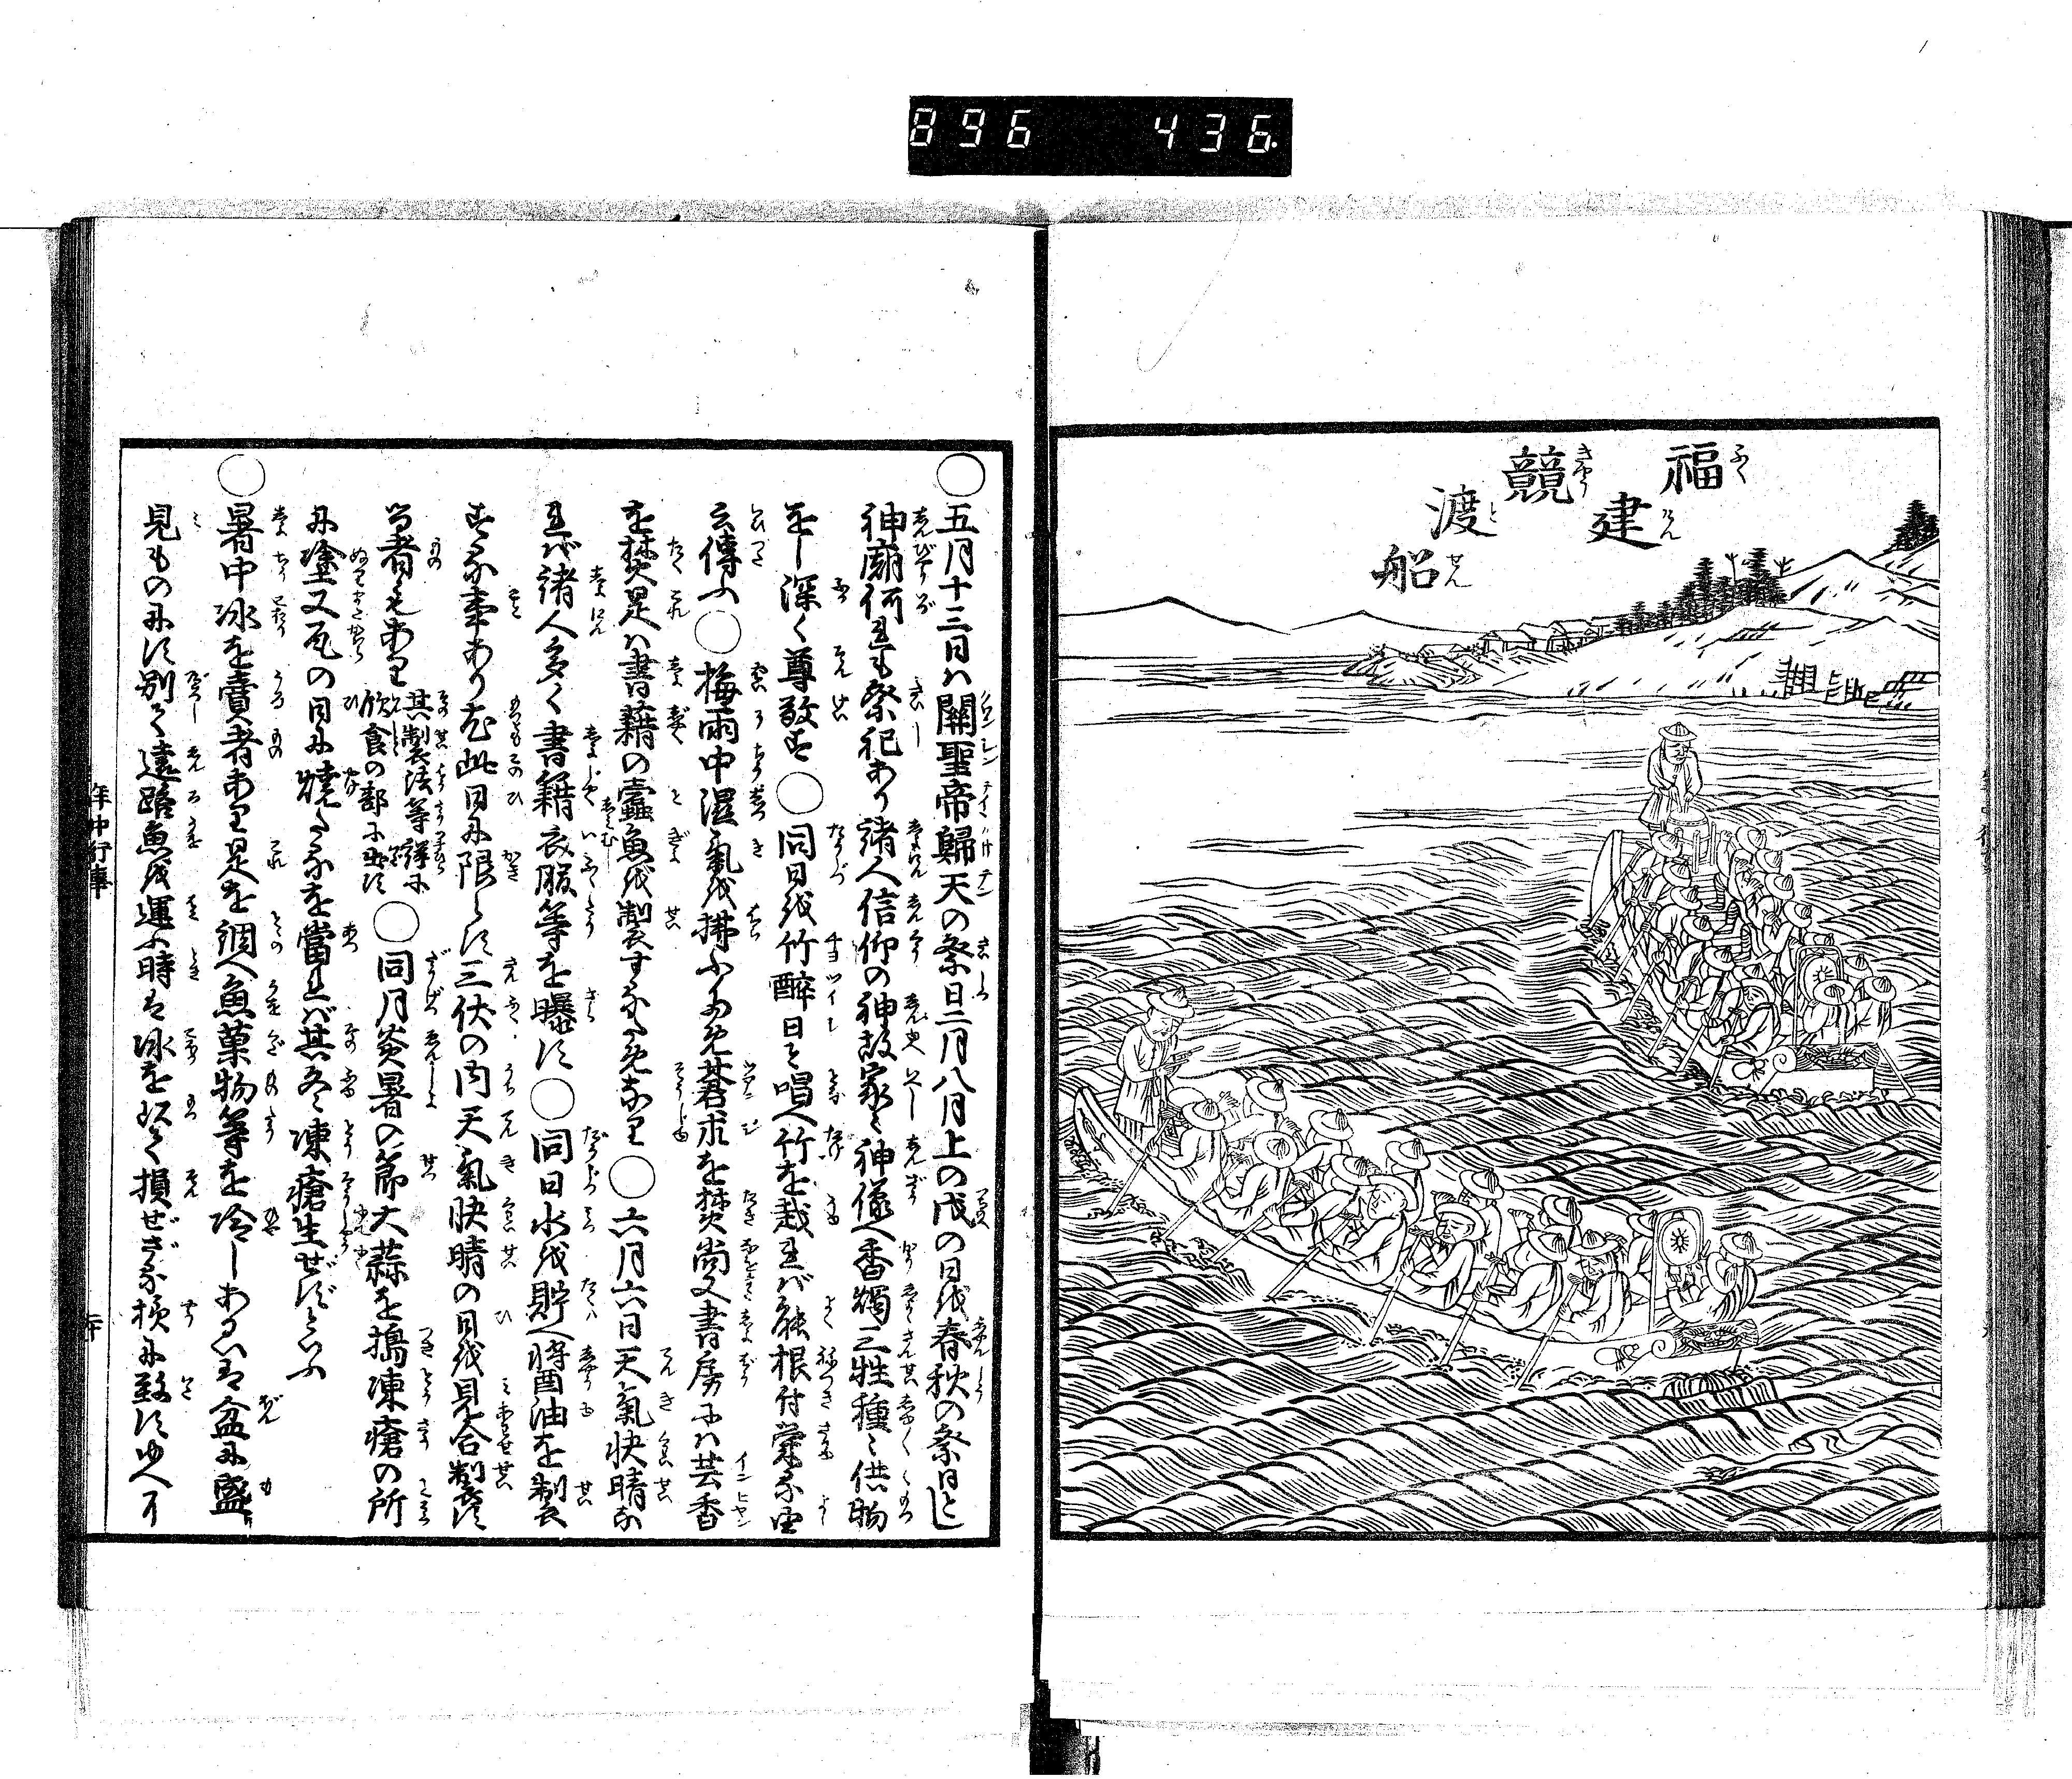 896 436
福建
競渡船
〇五月十三日ハ關聖帝歸天の祭日二月八月上の戊の日を春秋の祭日とし
神廟何れも祭祀あり諸人信仰の神故家々神像へ香燭三牲種々供物
をし深く尊敬す〇同日を竹醉日と唱へ竹を栽れバ能根付栄る由
云傳ふ〇梅雨中濕氣を拂ふため蒼朮を焚尚又書房にハ芸香
を焚是ハ書籍の蠹魚を製するためなり〇六月六日天氣快晴な
れバ諸人多く書籍衣服等を曝す〇同日水を貯へ醤油を制製
する事あり尤此日に限らす三伏の内天氣快晴の日を見合制製す
る者もあり其製法等詳に飲食の部に出す〇同月炎暑の節大蒜を搗凍瘡の所
に塗又瓦の日に焼たるを當れバ其冬凍瘡生せずといふ
〇暑中氷を賣者あり是を調へ魚菓物等を冷しあるいは盆に盛り
見ものにす別て遠路魚を運ふ時は氷を以て損せざる様に致すゆへ可
年中行事